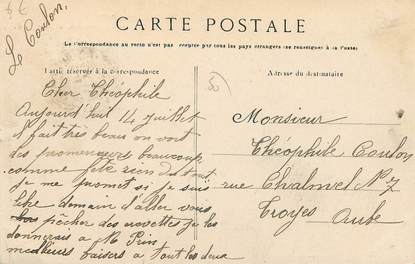 6 €
Le Coulon,
CARTE POSTALE
La Correspondance au recto n'est pas acceptée par tous les pays étrangers (se renseigner à la Poste)
Partie réservée à la correspondance
Adresse du destinataire
Cher Théophile
Aujourd'hui 14 Juillet
il fait très beau on voit
des promeneurs beaucoup
comme fête rien du tout
je me promet si je suis
libre demain d'aller vous
pêcher des
donnerais à Mr Prin
meilleurs baisers à tout les deux
Monsieur
Théophile Coulon
rue Chalmel N° 7
Troyes Aube